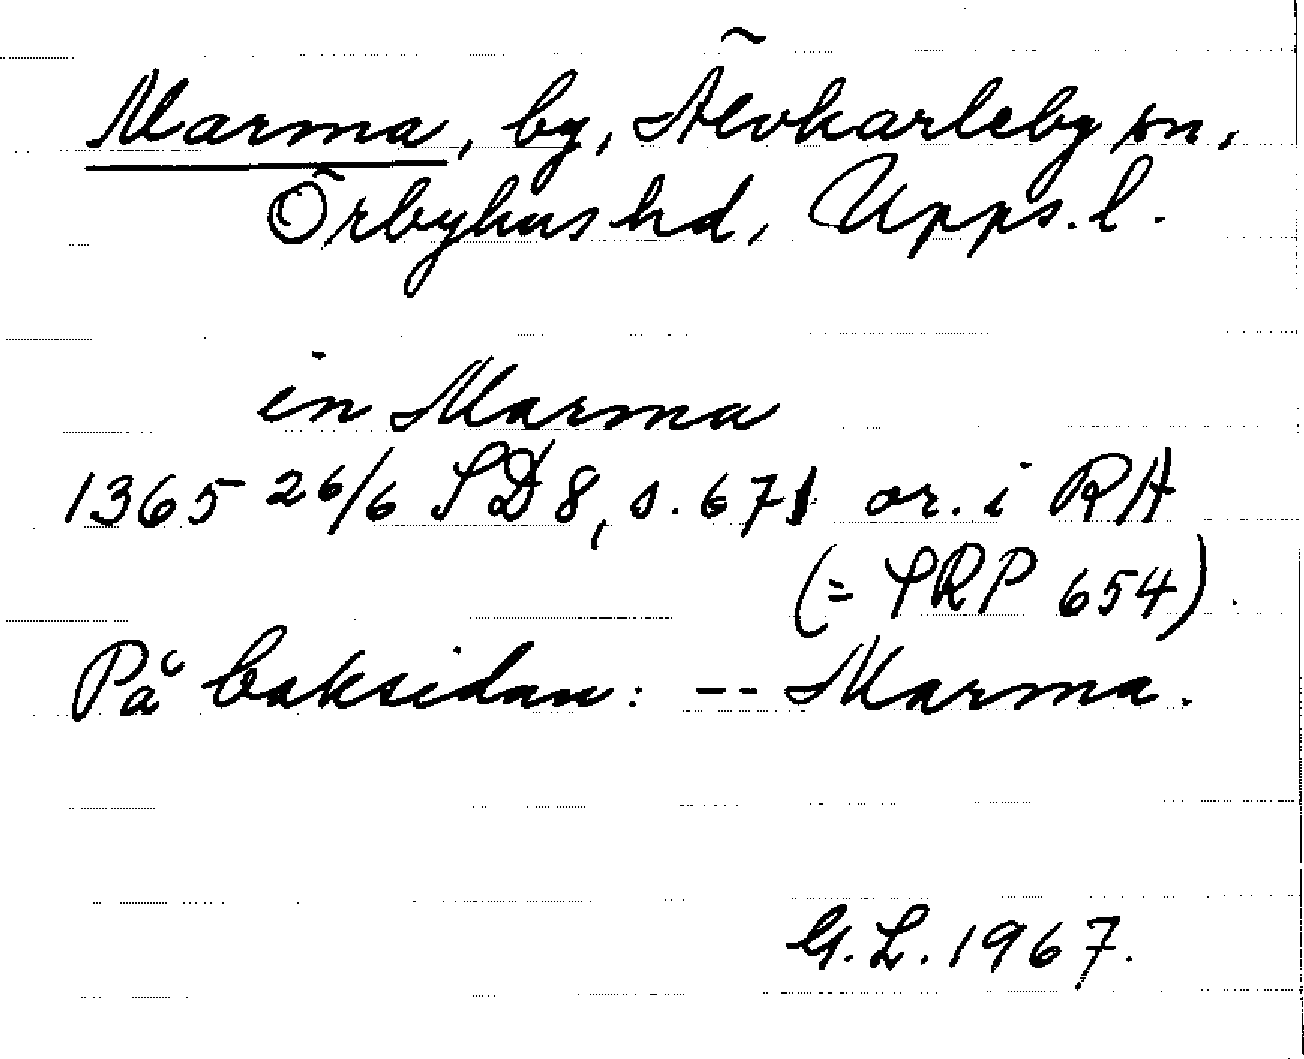 Marma, by, Älvkarleby sn,
Örbyhus hd, Upps.l.
in Marma
1365 26/6 SD 8, s. 671 or. i RA
(= SRP 654).
På baksidan: -- Marma.
G.L. 1967.